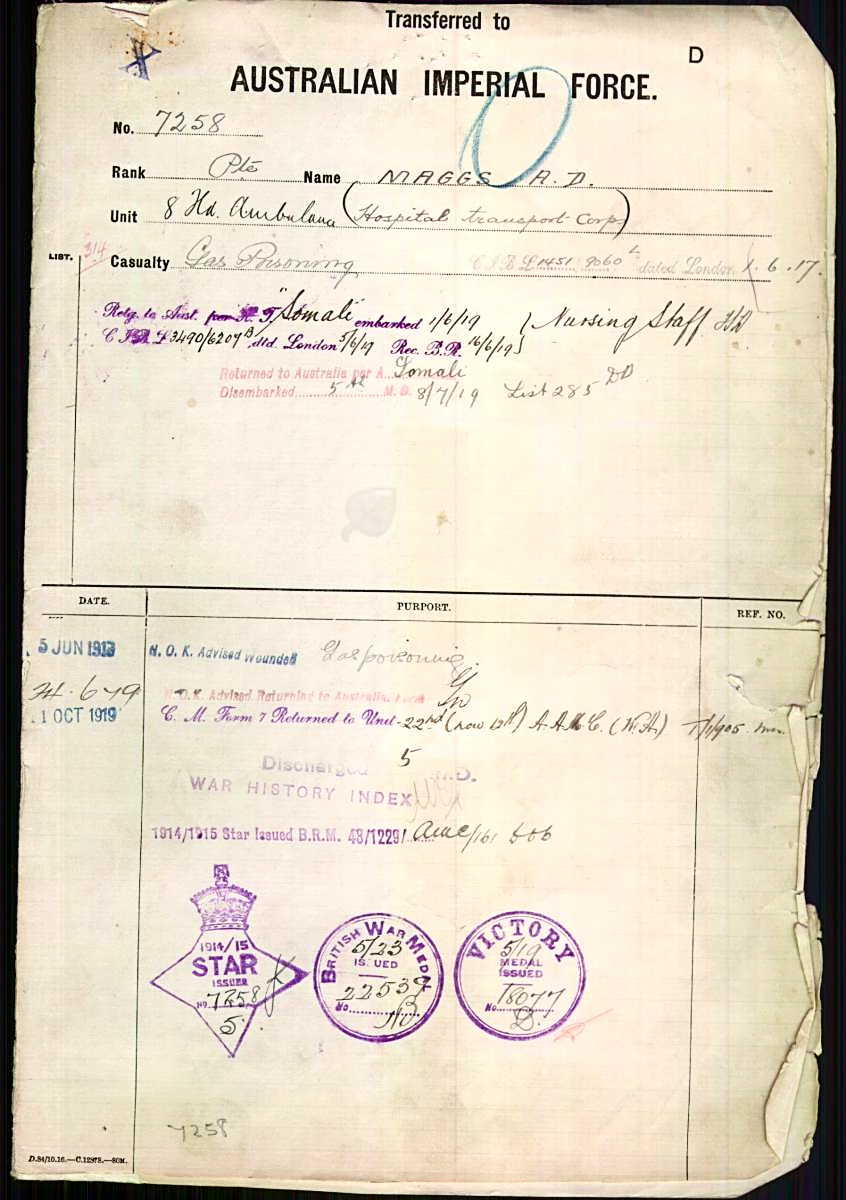 Transferred to
D
AUSTRALIAN IMPERIAL FORCE.
No. 7258
Rank Pte Name MAGGS A.D.
Unit 8 Fld. Ambulance (Hospital transport Corp)
LIST. 314 Casualty Gas Poisoning C I B L 1451 9060 dated London 1.6.17.
Retg. to Aust. per H. T. "Somali" embarked 1/6/19 Nursing Staff
C I B L 3490/6207 B dtd. London 5/6/19 Rec. B.R. 16/6/19
Returned to Australia per A. Somali
Disembarked 5th M.D. 8/7/19 List 285 DD
DATE. PURPORT. REF. NO.
5 JUN 1918 N. O. K. Advised Wounded Gas poisoning
6 19 N. O. K. Advised Returning to Australia.
1 OCT 1919 C. M. Form 7 Returned to Unit 22nd (now 12th) A.A.M.C. (W.A)
Discharged 5 M.D.
WAR HISTORY INDEX
1914/1915 Star Issued B.R.M. 48/12291 AMC/161
1914/15
STAR
ISSUED
No. 7258
5.
BRITISH WAR MEDAL
5/23
ISSUED
22539
No.
VICTORY
5/19
MEDAL
ISSUED
18077
No.
7258
D.84/10.16.—C.12978.—80M.